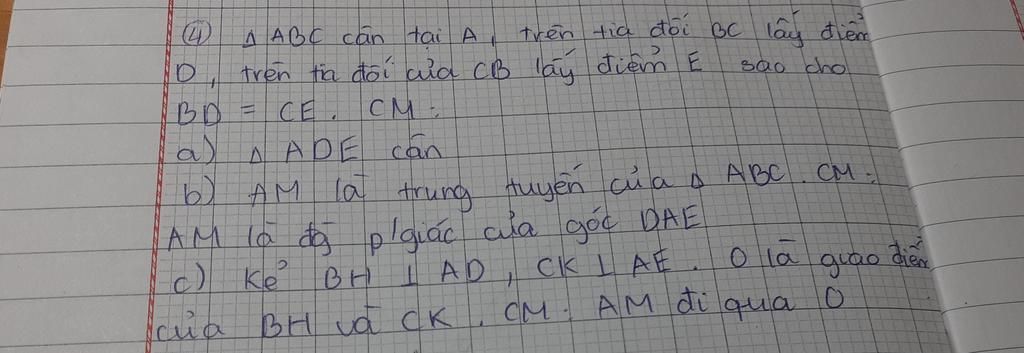 ④ Δ ABC cân tại A, trên tia đối BC lấy điểm
D, trên tia đối của CB lấy điểm E sao cho
BD = CE. CM:
a) Δ ADE cân
b) AM là trung tuyến của Δ ABC. CM:
AM là đg p/giác của góc DAE
c) Kẻ BH ⊥ AD, CK ⊥ AE. O là giao điểm
của BH và CK. CM: AM đi qua O